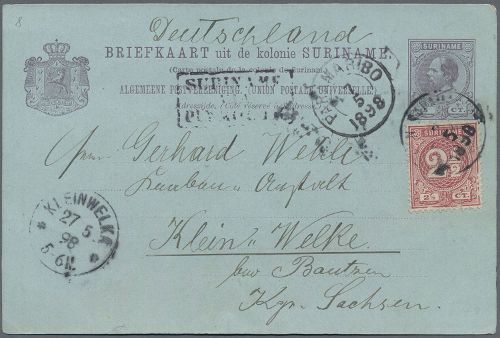 8
Deutschland
BRIEFKAART uit de kolonie SURINAME.
(Carte postale de la colonie de Surinam)
ALGEMEENE POSTVEREENIGING. (UNION POSTALE UNIVERSELLE)
Adreszijde. (Côté réservé à l'adresse)
SURINAME
CT.
SURINAME
PARAMARIBO
5
1898
5
1898
SURINAME
2½
2½ CT.
Gerhard
Klein-Welke
bei Bautzen
Kgr. Sachsen.
KLEINWELKA
27 5
98
5-6N.